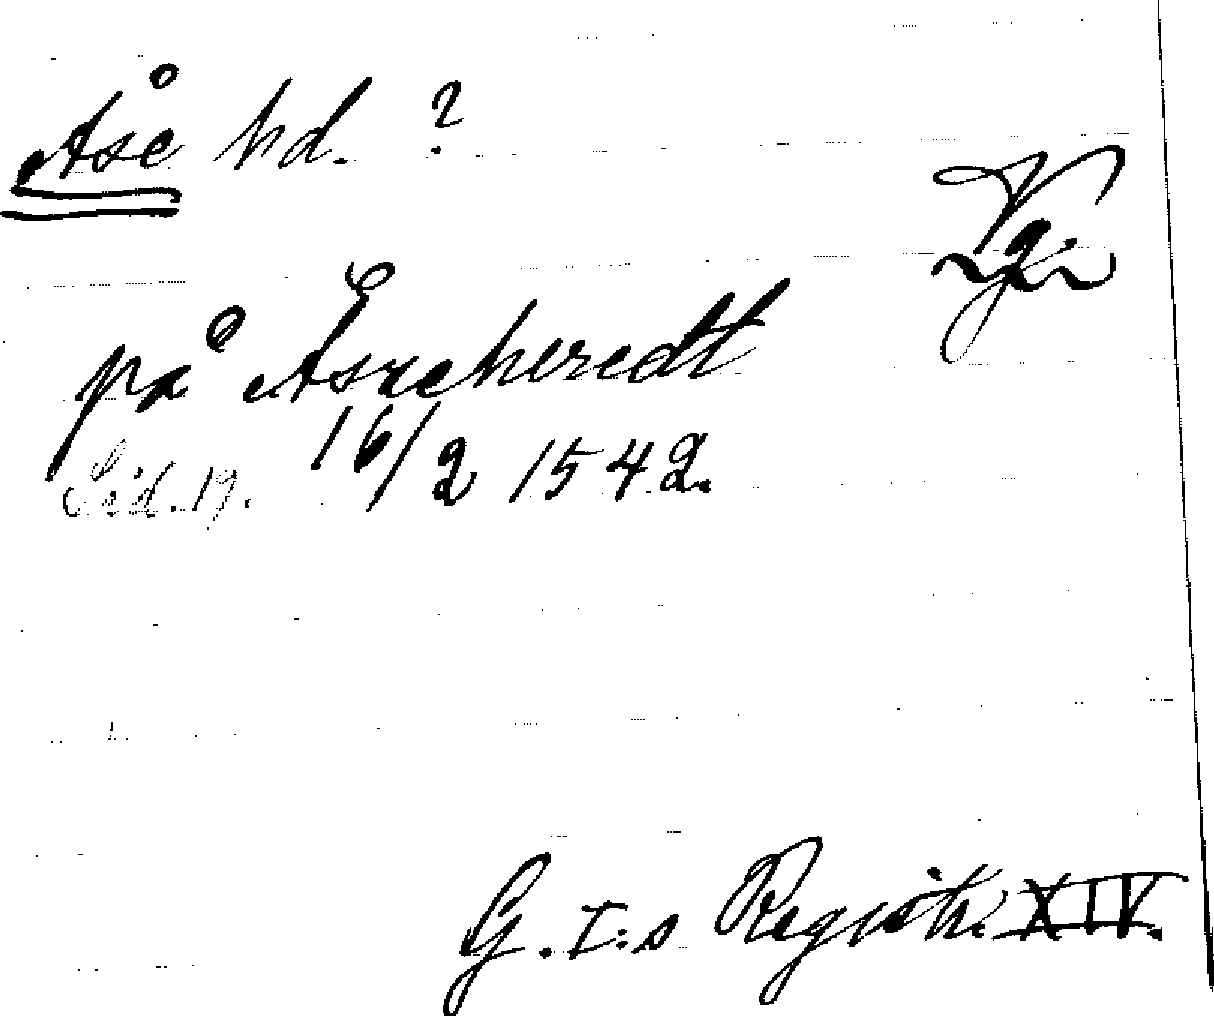 Åse hd. ?
Vg.
på Åseheredt
Sid. 19. 16/2 1542.
G. I:s Registr. XIV.